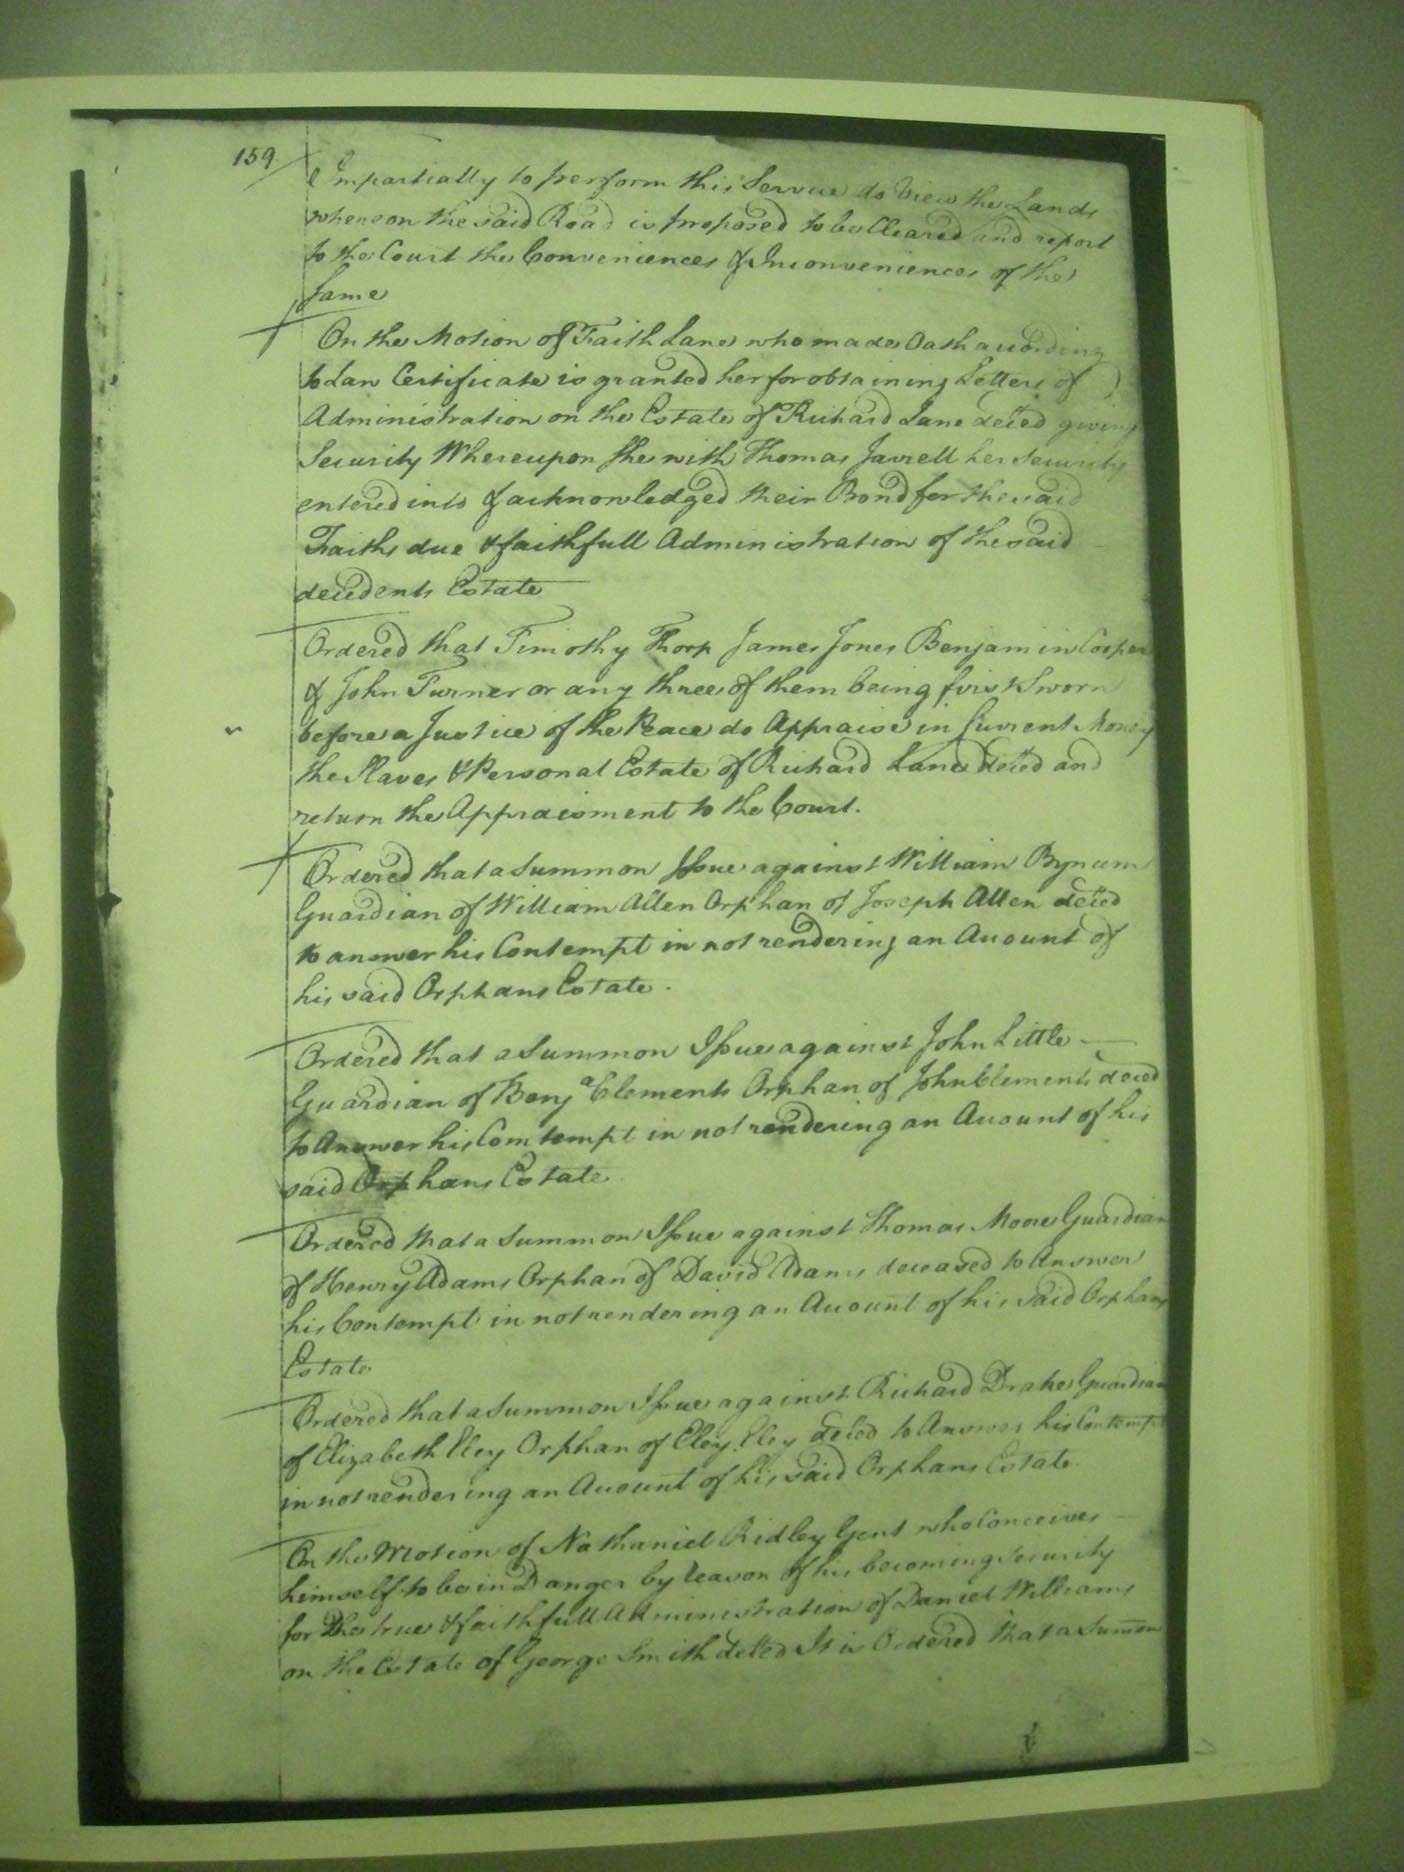 159
& Impartially to perform this Service do View the Lands
whereon the said Road is proposed to be Cleared and report
to the Court the Conveniences & Inconveniences of the
same
On the Motion of Faith Lane who made Oath according
to Law Certificate is granted her for obtaining Letters of
Administration on the Estate of Richard Lane deced giving
Security Whereupon she with Thomas Jarrell her security
entered into & acknowledged their Bond for the said
Faiths due & faithfull Administration of the said
decedents Estate
Ordered that Timothy Thorp James Jones Benjamin Cooper
& John Turner or any three of them being first Sworn
before a Justice of the Peace do Appraise in Current Money
the Slaves & Personal Estate of Richard Lane deced and
return the Appraisment to the Court.
Ordered that a Summon Issue against William Bynum
Guardian of William Allen Orphan of Joseph Allen deced
to answer his Contempt in not rendering an Account of
his said Orphans Estate.
Ordered that a Summon Issue against John Little
Guardian of Benja Clements Orphan of John Clements deced
to Answer his Comtempt in not rendering an Account of his
said Orphans Estate
Ordered that a Summon Issue against Thomas Moore Guardian
of Henry Adams Orphan of David Adams deceased to Answer
his Contempt in not rendering an Account of his said Orphans
Estate
Ordered that a Summon Issue against Richard Drake Guardian
of Elizabeth Eley Orphan of Eley Eley deced to Answer his Contempt
in not rendering an Account of his said Orphans Estate
On the Motion of Nathaniel Ridley Gent who Conceives
himself to be in Danger by reason of his becoming Security
for the true & faithfull Administration of Daniel Williams
on the Estate of George Smith deced It is Ordered that a Summon